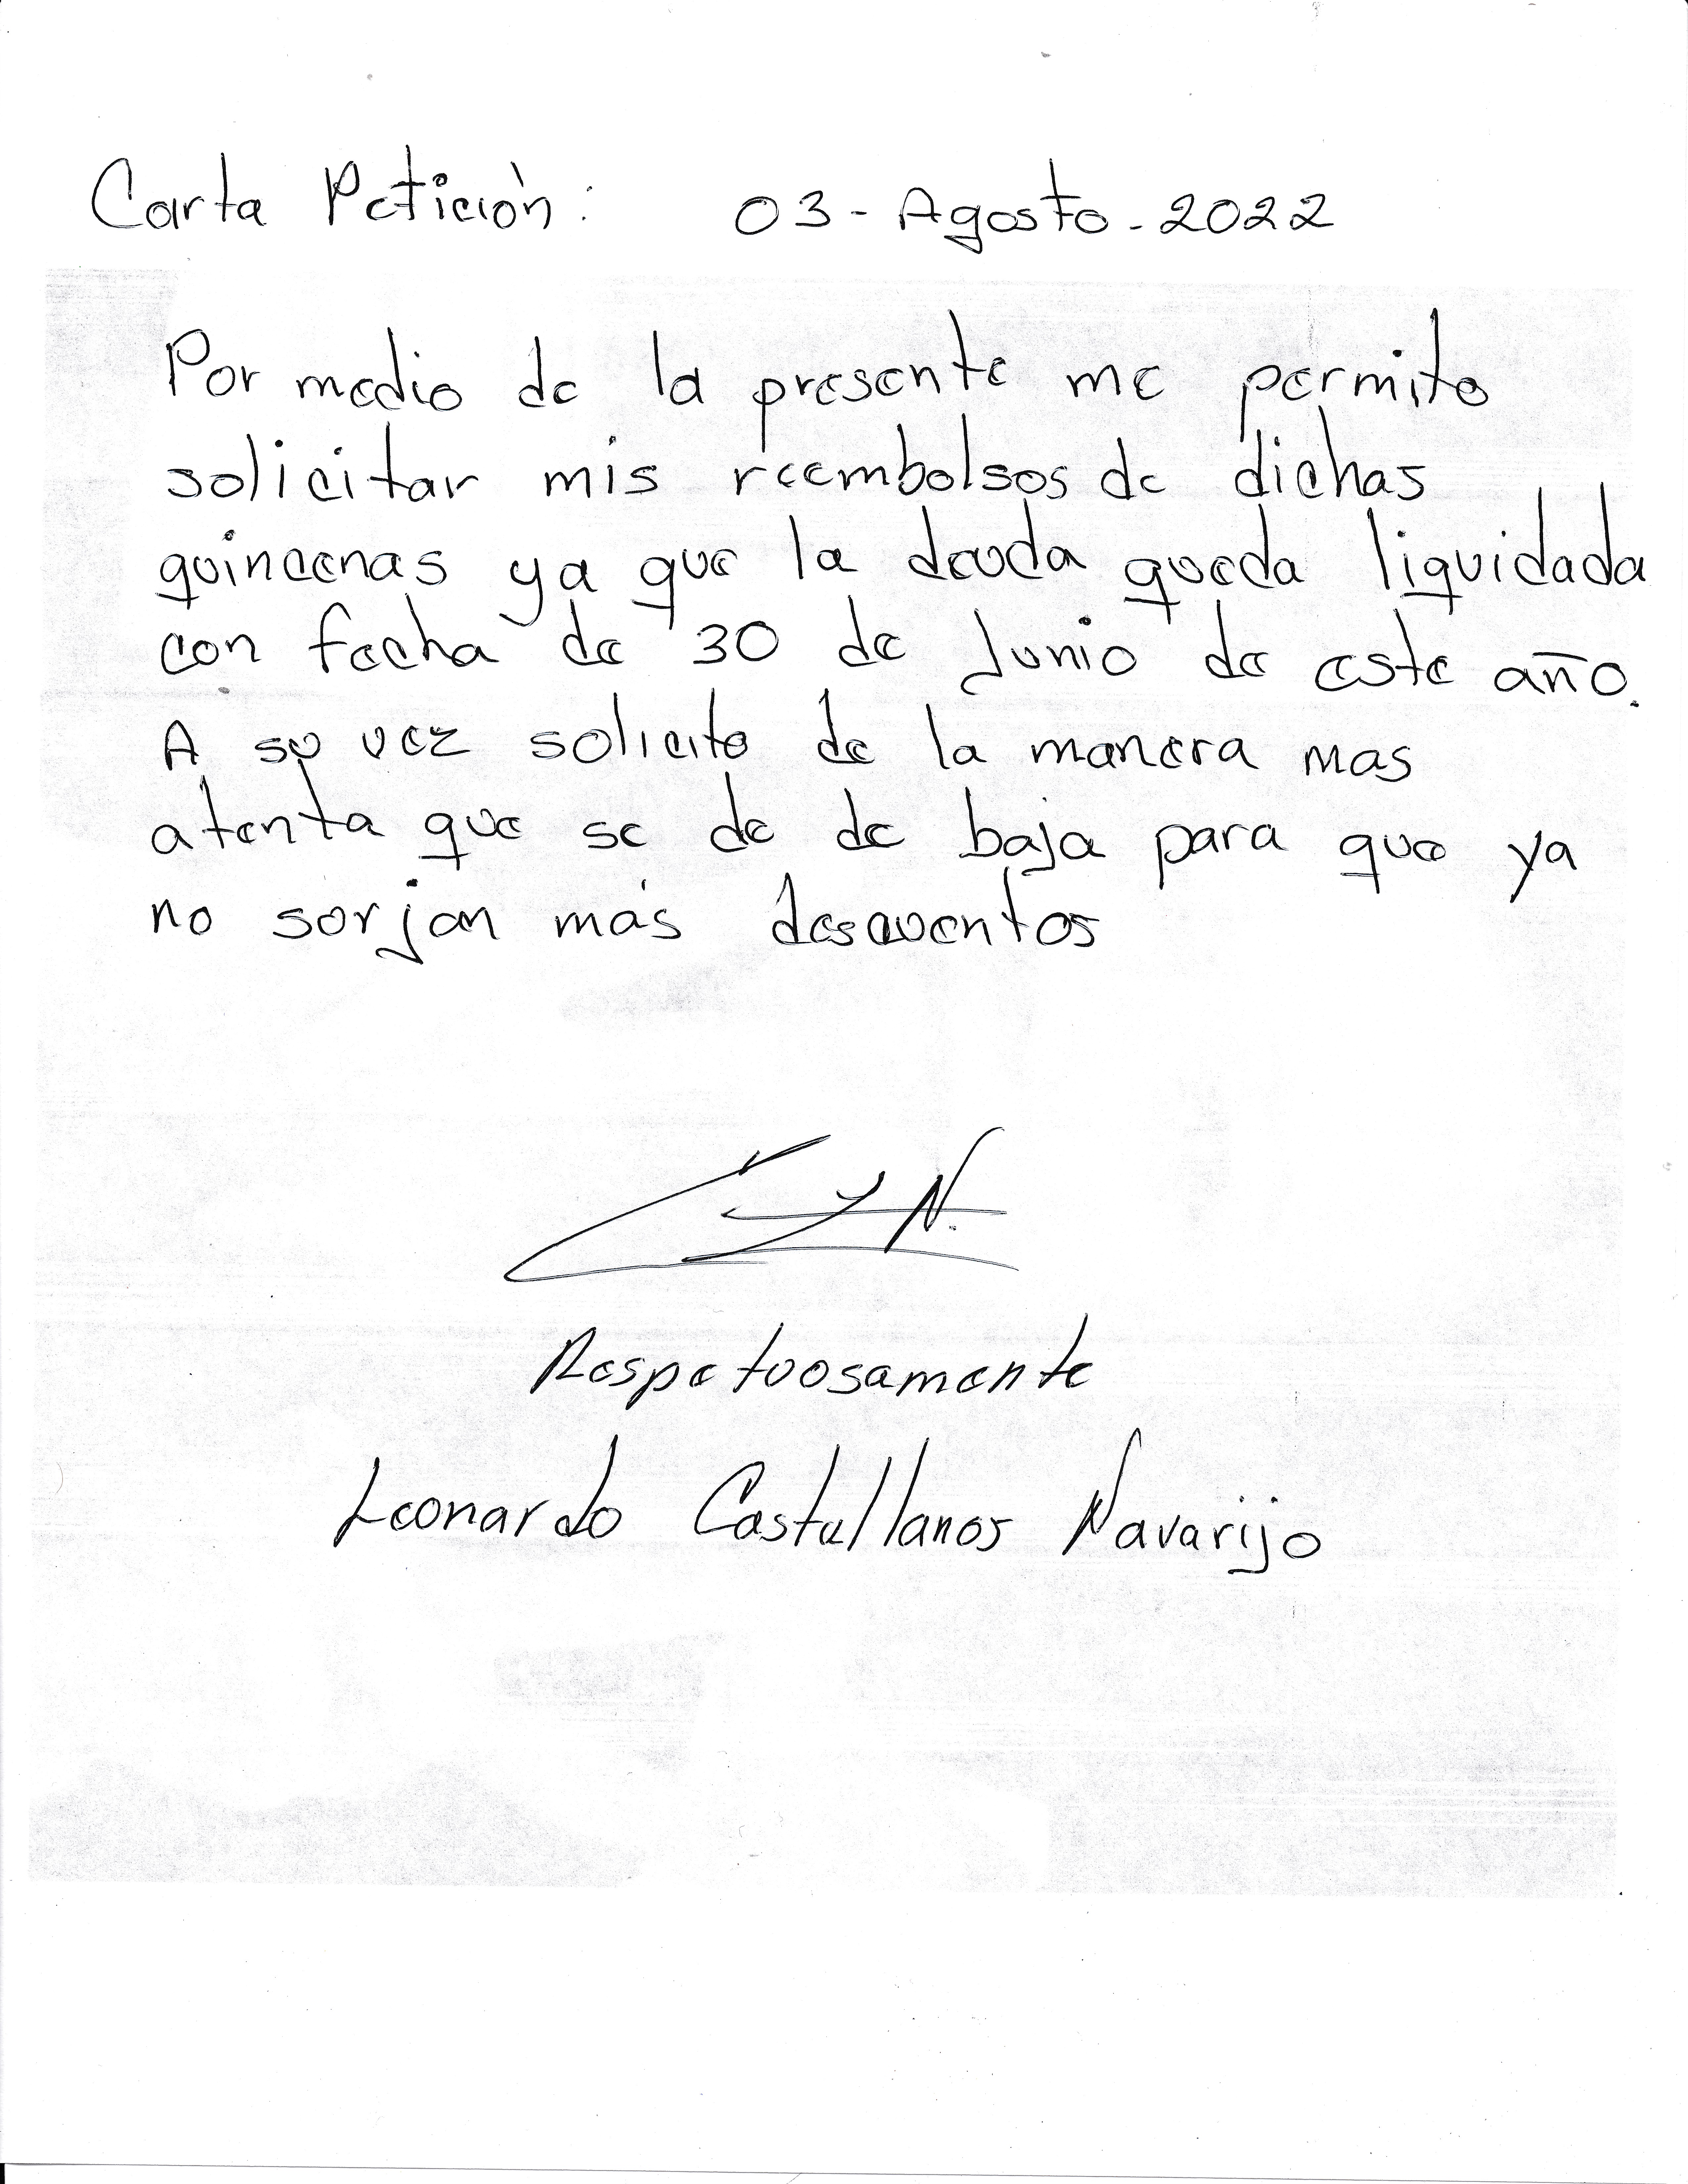 Carta Petición: 03-Agosto-2022
Por medio de la presente me permito
solicitar mis reembolsos de dichas
quincenas ya que la deuda queda liquidada
con fecha de 30 de Junio de este año.
A su vez solicito de la manera mas
atenta que se de de baja para que ya
no surjan más descuentos
Respetuosamente
Leonardo Castellanos Navarijo